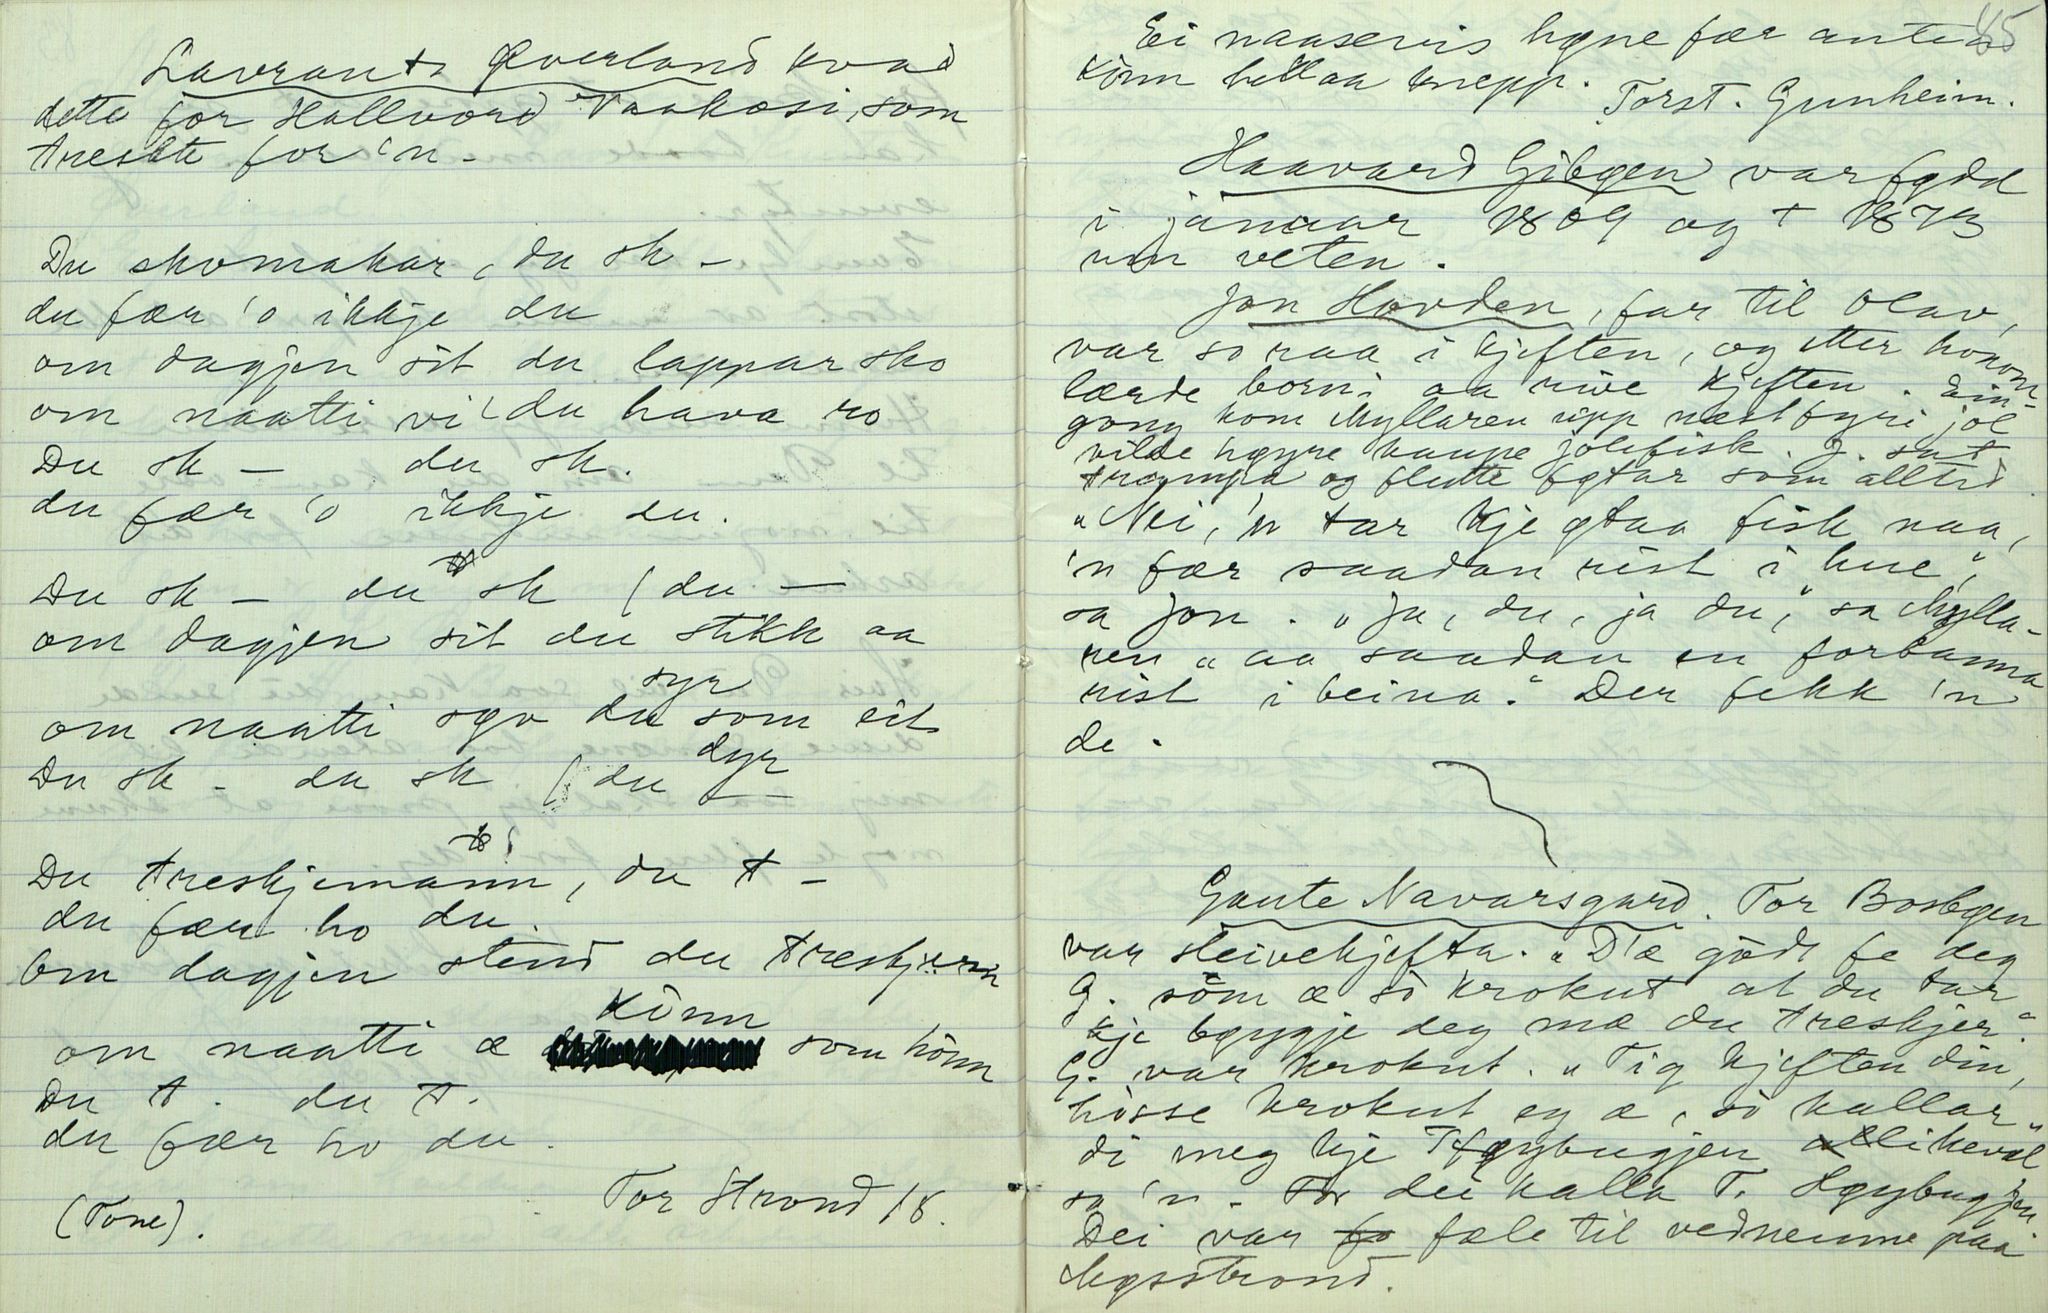 Lavrants Øverland kvad
dette for Hallvord Vaakasi, som
treskte for 'n.
Du skomakar, du sk –
du fær 'o ikkje du
om dagjen sit du lappar sko
om naatti vi du hava ro
Du sk – du sk.
du fær 'o ikkje du.
Du sk – du sk / du –
om dagjen sit du stikk aa
syr
om naatti søv du som eit
dyr
Du sk – du sk / du –
Du treskjemann, du t –
du fær ho du.
Om dagjen stend du treskjer
kònn
om naatti æ som hònn
Du t. du t.
du fær ho du.
(Tone). Tor Strond 18.
45
Ei naasevis høne fær anten
kònn hell aa knepp.
Torst. Gunheim.
Haavard Gibøen var fødd
i januar 1809 og † 1873
um veten.
Jon Hovden, far til Olav,
var so raa i kjeften, og etter honom
lærde borni aa rive kjeften. Ein-
gong kom Myllaren upp næst fyri jol
vilde høyre kaupe jolefisk. J. sat
og flutte føtar som alltid.
"Nei, 'n tar kje øtaa fisk naa,
'n fær saadan rist i hue",
sa Jon. "Ja, du, ja du," sa Mylla-
ren "aa saadan en forbanna
rist i beina." Der fekk 'n
de.
Gaute Navarsgard. Tor Bosbøen
var sleivekjefta. "D'æ godt fe deg
G. sòm æ so krokut at du tar
kje bøygje deg mæ du treskjer."
G. var krokut. "Tig kjeften din,
hòsse krokut eg æ, so kallar
di meg kje Høybugjen allikevæl"
sa 'n. For dei kalla T. Høybugjen
Dei var fo fæle til vednemne paa
Møsstrond.